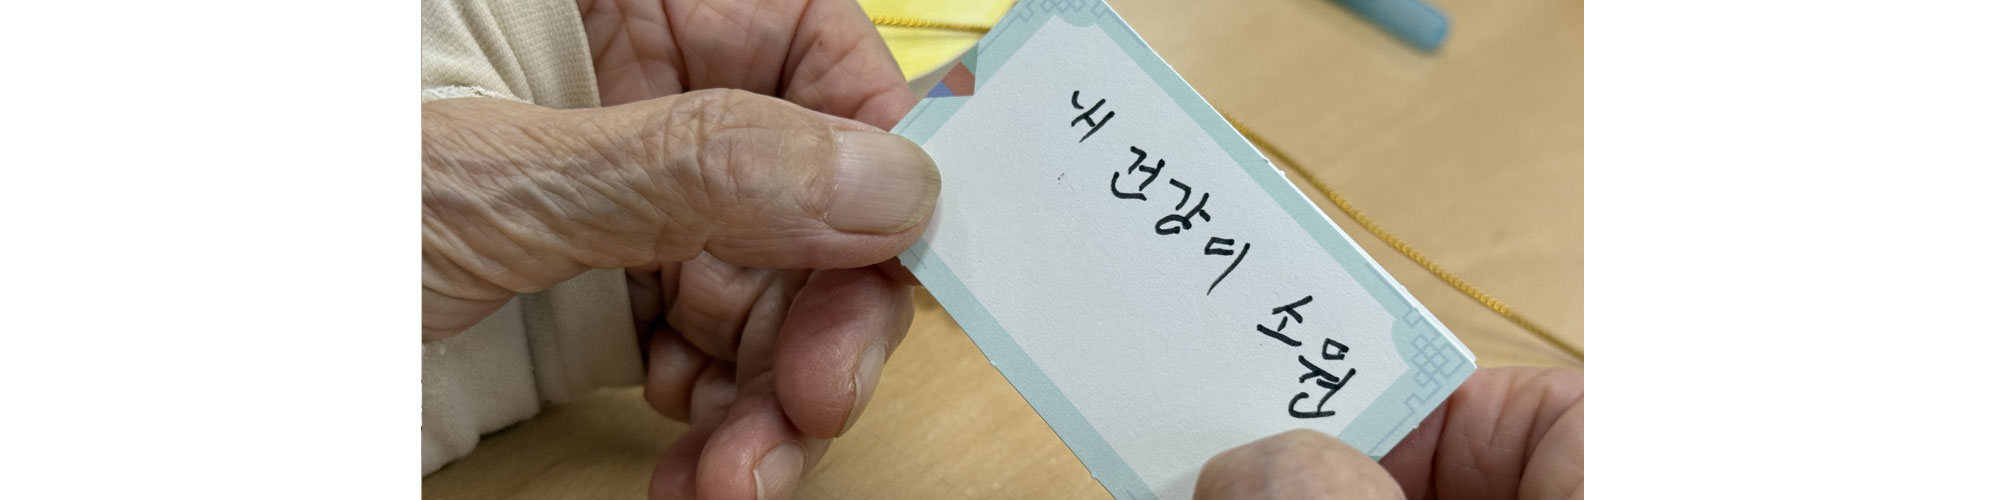 내 건강이 소원